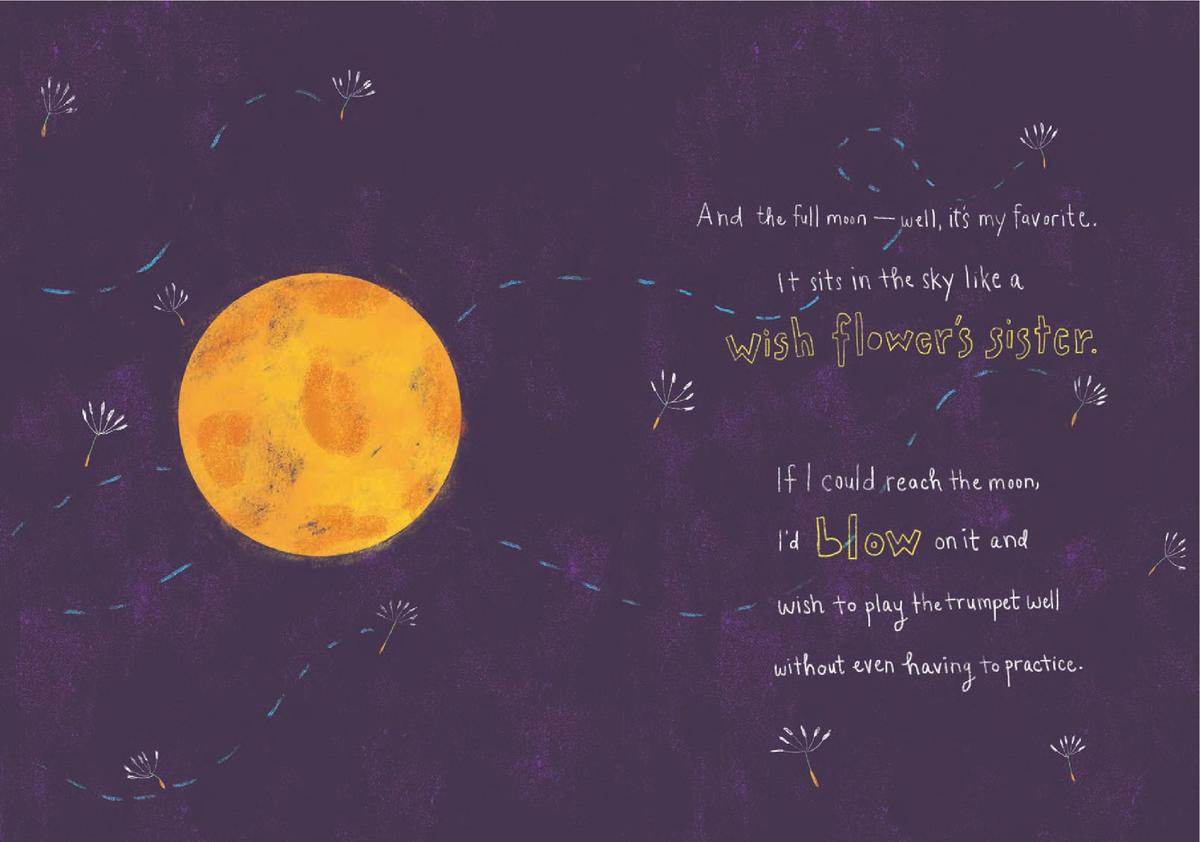 And the full moon — well, it's my favorite.
It sits in the sky like a
wish flower's sister.
If I could reach the moon,
I'd blow on it and
wish to play the trumpet well
without even having to practice.